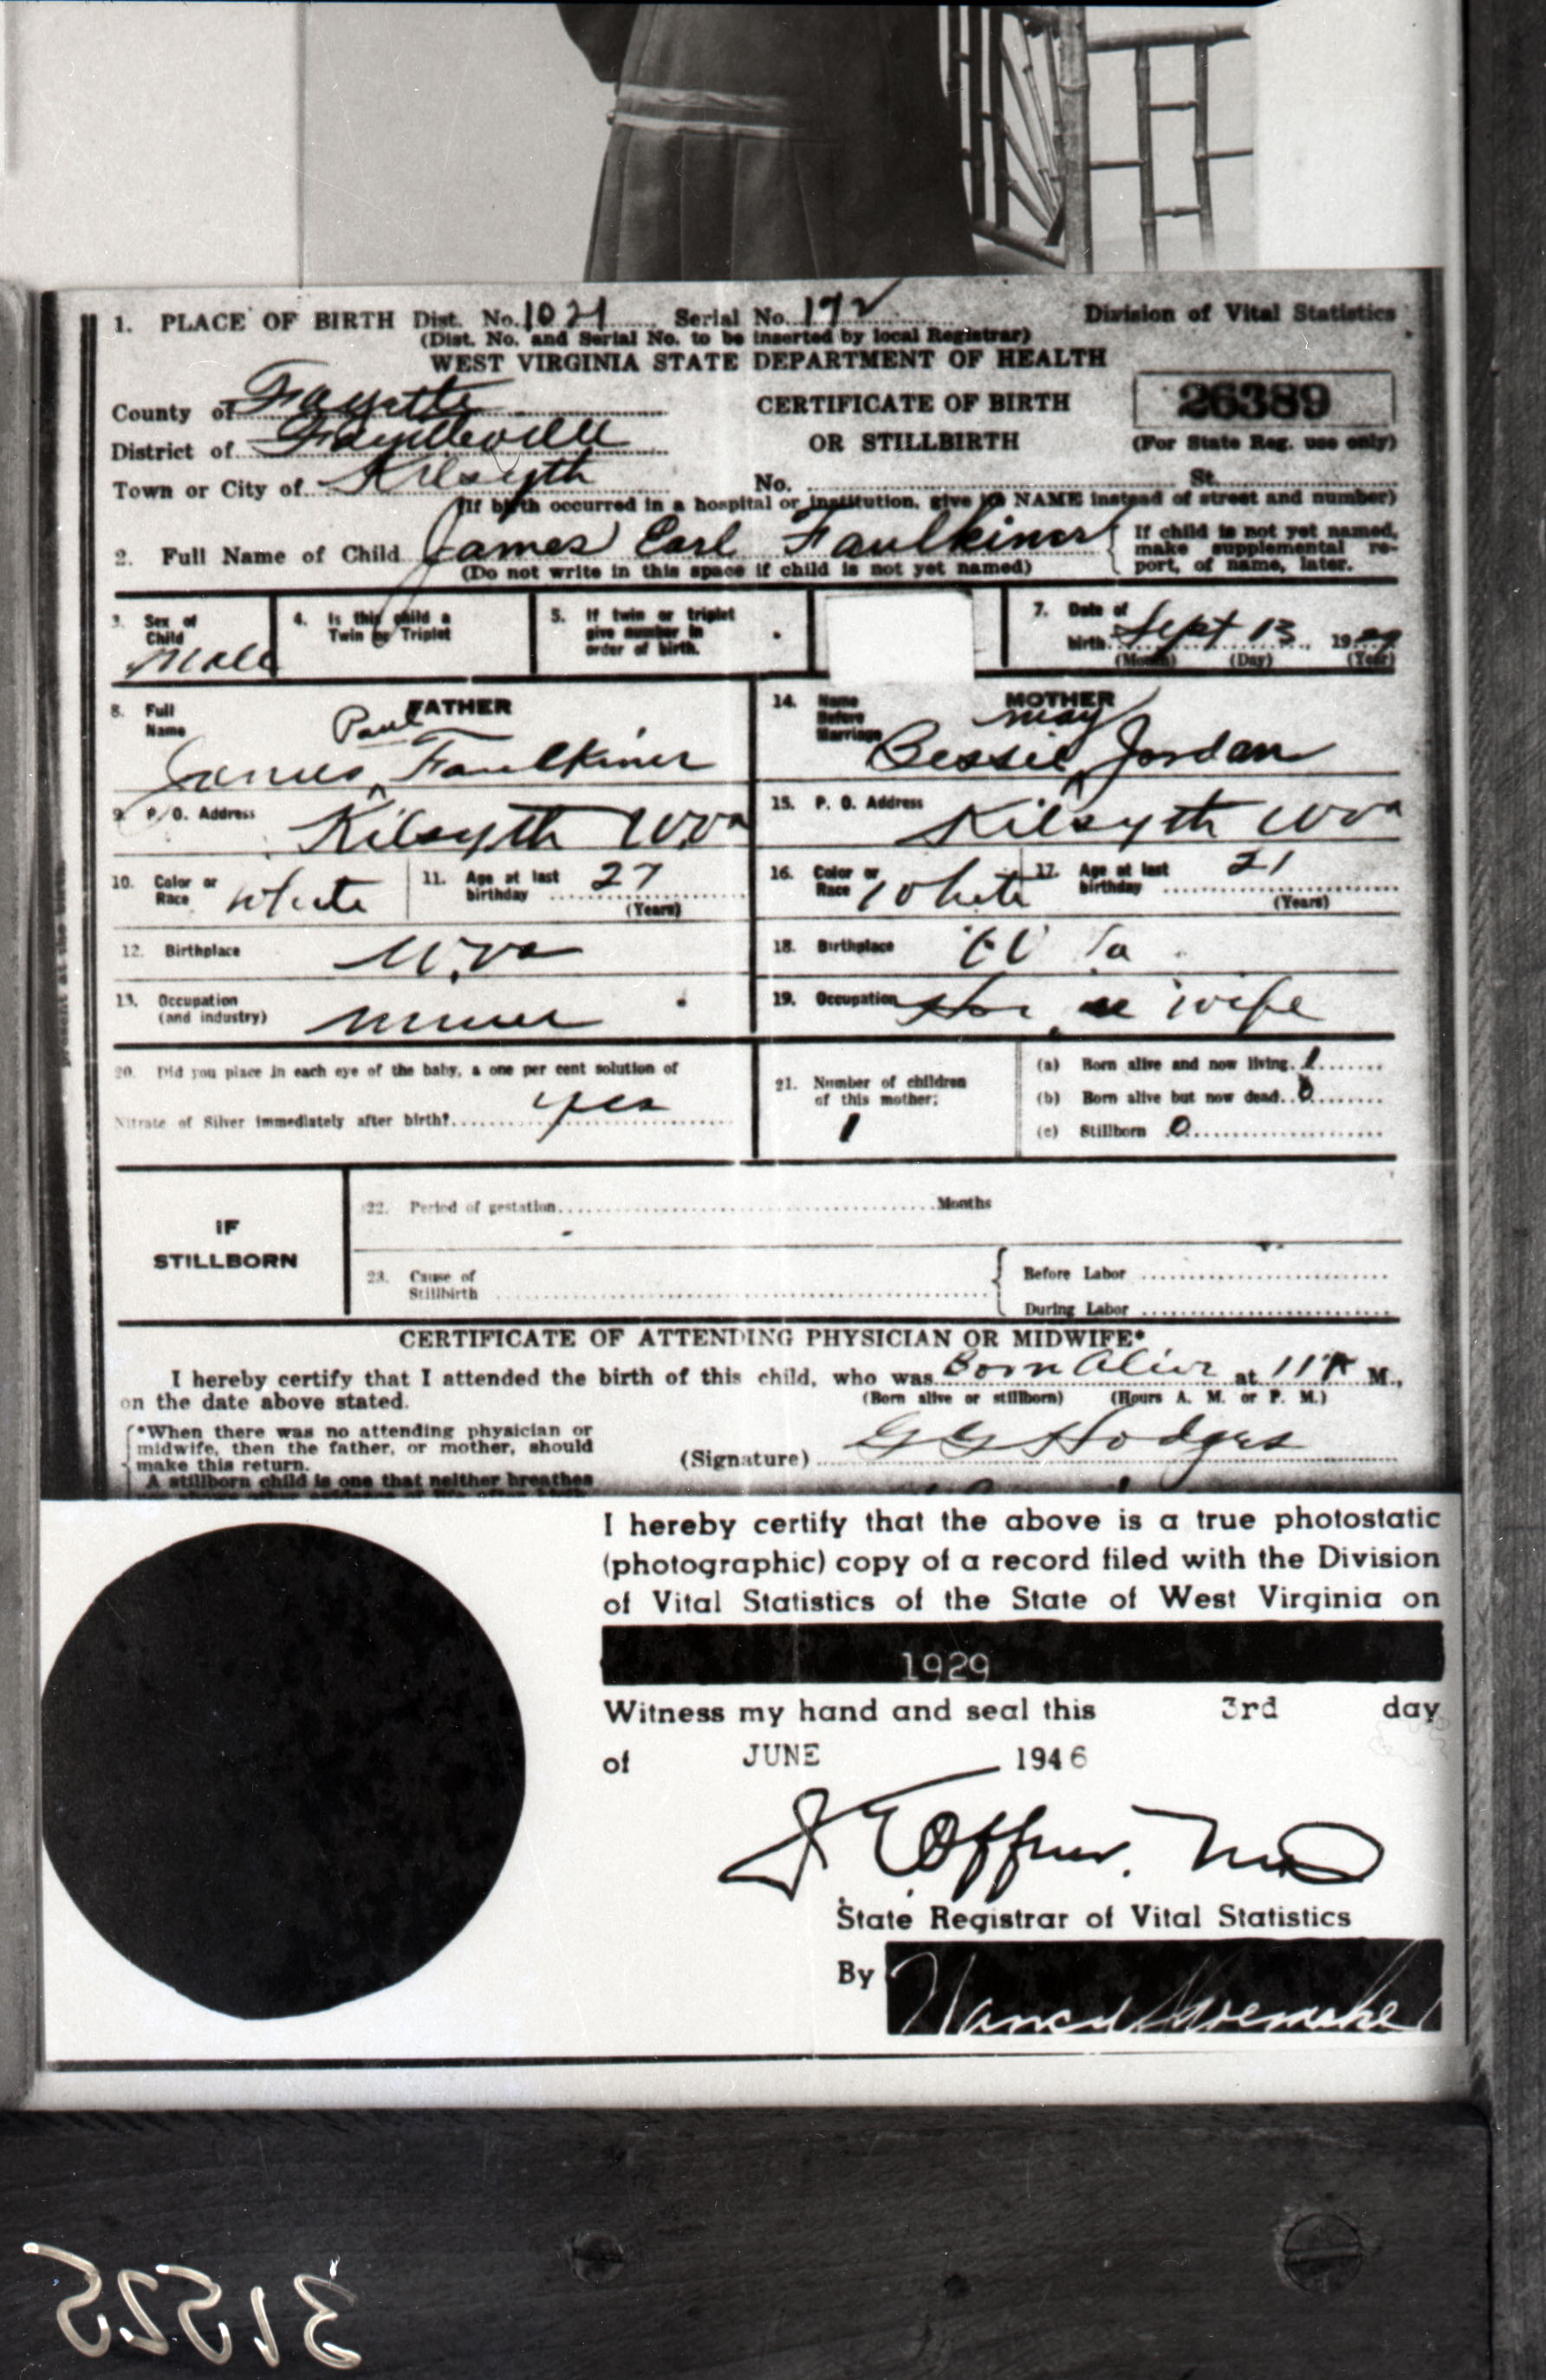 1. PLACE OF BIRTH Dist. No. 1021 Serial No. 172 Division of Vital Statistics
(Dist. No. and Serial No. to be inserted by local Registrar)
WEST VIRGINIA STATE DEPARTMENT OF HEALTH
County of Fayette CERTIFICATE OF BIRTH 26389
District of Fayetteville OR STILLBIRTH (For State Reg. use only)
Town or City of Kilsyth No. St.
(If birth occurred in a hospital or institution, give its NAME instead of street and number)
2. Full Name of Child James Earl Faulkiner If child is not yet named, make supplemental report, of name, later.
(Do not write in this space if child is not yet named)
3. Sex of Child Male 4. Is this child a Twin or Triplet 5. If twin or triplet give number in order of birth. 7. Date of birth Sept 13, 1929
(Month) (Day) (Year)
FATHER MOTHER
8. Full Name James Paul Faulkiner 14. Name Before Marriage Bessie May Jordan
9. P. O. Address Kilsyth WVa 15. P. O. Address Kilsyth WVa
10. Color or Race White 11. Age at last birthday 27 (Years) 16. Color or Race White 17. Age at last birthday 21 (Years)
12. Birthplace W.Va 18. Birthplace
13. Occupation (and industry) miner 19. Occupation wife
20. Did you place in each eye of the baby, a one per cent solution of
Nitrate of Silver immediately after birth? yes
21. Number of children of this mother: 1
(a) Born alive and now living. 1
(b) Born alive but now dead. 0
(c) Stillborn 0
IF STILLBORN
22. Period of gestation Months
23. Cause of Stillbirth Before Labor
During Labor
CERTIFICATE OF ATTENDING PHYSICIAN OR MIDWIFE*
I hereby certify that I attended the birth of this child, who was Born Alive at 11 A M.,
on the date above stated. (Born alive or stillborn) (Hours A. M. or P. M.)
*When there was no attending physician or
midwife, then the father, or mother, should
make this return.
A stillborn child is one that neither breathes
(Signature) G G Hodges
I hereby certify that the above is a true photostatic
(photographic) copy of a record filed with the Division
of Vital Statistics of the State of West Virginia on
1929
Witness my hand and seal this 3rd day
of JUNE 1946
State Registrar of Vital Statistics
By Nancy
31525